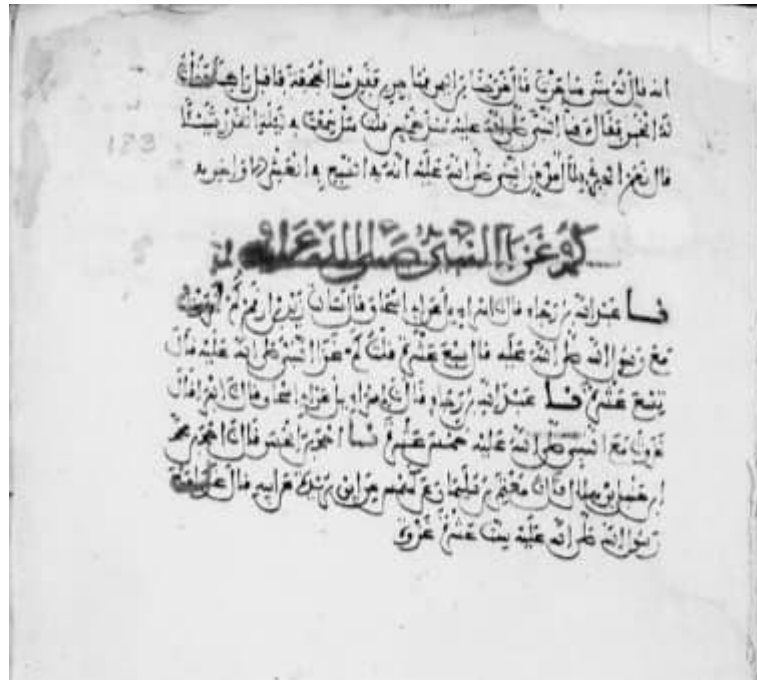 انه قال له متى هاجرت قال خرجنا من اليمن مهاجرين فقدمنا الجحفة فاقبل راكب فقلت
له الخبر فقال دفنا النبي صلى الله عليه منذ خمس قلت هل سمعت في ليلة القدر شيئا
قال نعم اخبرني بلال مؤذن النبي صلى الله عليه انه في السبع في العشر الاواخر
كم غزا النبي صلى الله عليه
نا عبد الله بن رجاء قال نا اسراءيل عن ابي اسحاق قال سالت زيد بن ارقم كم غزوت
مع رسول الله صلى الله عليه قال سبع عشرة قلت كم غزا النبي صلى الله عليه قال
تسع عشرة نا عبد الله بن رجاء قال نا اسراءيل عن ابي اسحاق قال نا البراء قال
غزوت مع النبي صلى الله عليه خمس عشرة نا احمد بن الحسن قال نا احمد بن محمد
بن حنبل بن هلال قال نا معتمر بن سليمان عن كهمس عن ابن بريدة عن ابيه قال غزا مع
رسول الله صلى الله عليه ست عشرة غزوة